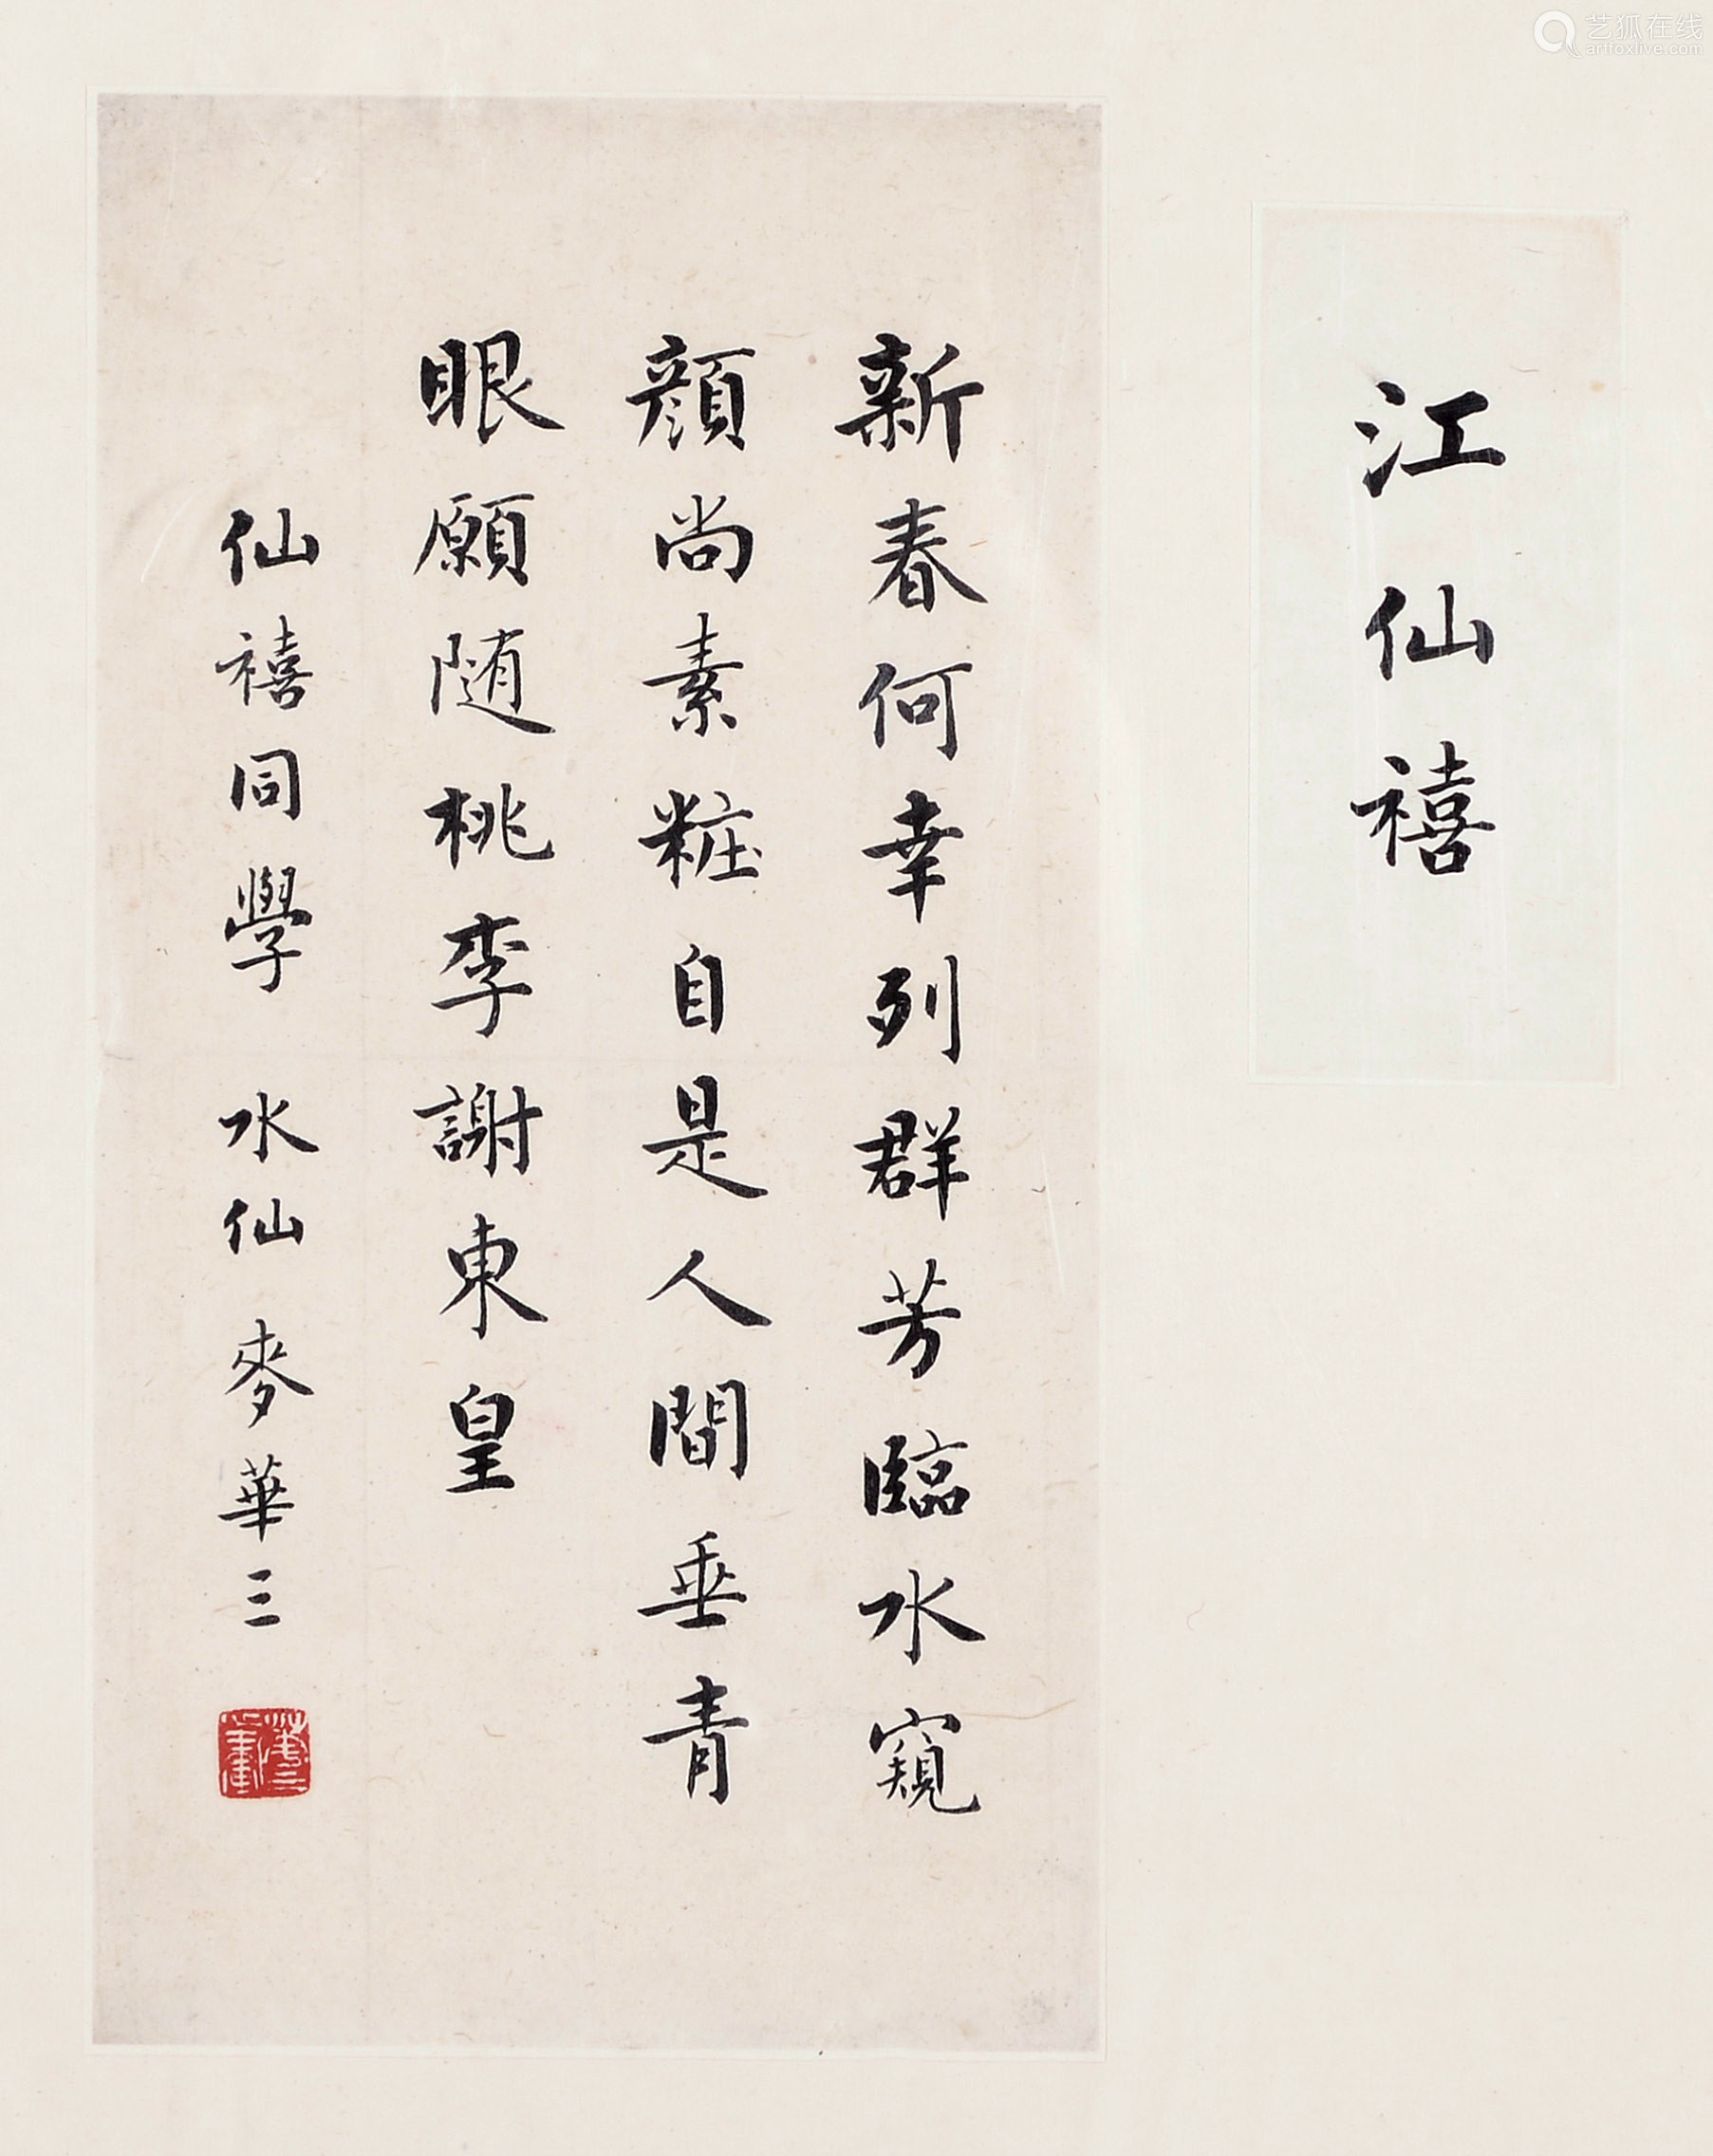 江仙禧
新春何幸列群芳臨水窺
顔尚素粧自是人間垂青
眼願随桃李謝東皇
仙禧同學 水仙 麥華三
艺狐在线
artfoxlive.com